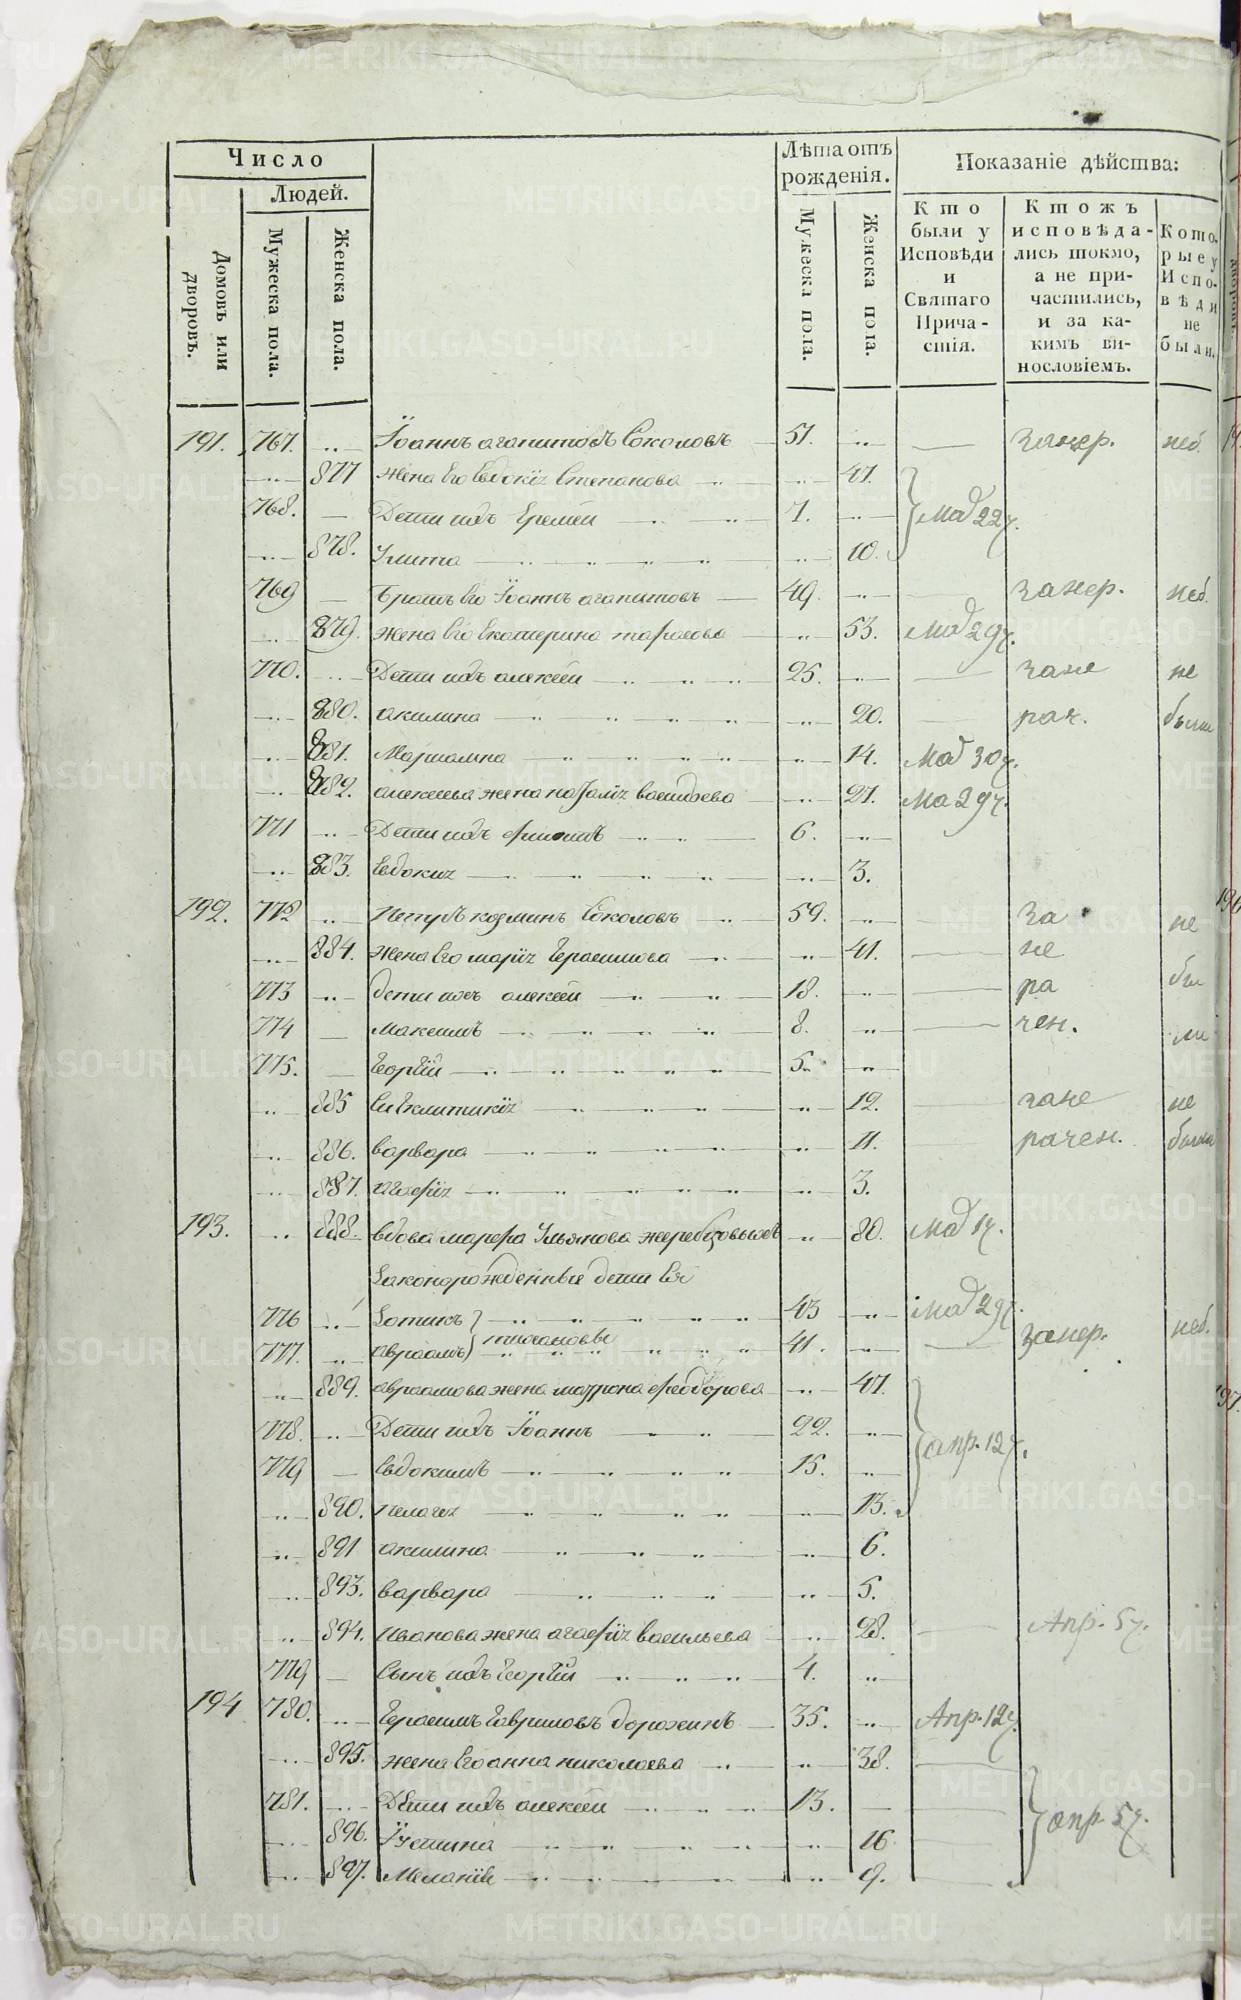 Число
Людей.
Домовъ или дворовъ.
Мужеска пола.
Женска пола.
Лѣта отъ рожденія.
Мужеска пола.
Женска пола.
Показаніе дѣйства:
Кто были у Исповѣди и Святаго Причастія.
Ктожъ исповѣдались токмо, а не причастились, и за какимъ винословіемъ.
Которые у Исповѣди не были.
191. 767. Іоаннъ агапитовъ Соколовъ 51. занер. неб.
877 жена Его Евдокія Степанова 47.
768. Дети ихъ Еремей 7. Мая 22ч.
878. Улита 10.
769 — Братъ Его Іоаннъ агапитовъ 49. занер. неб.
879. жена Его Екатерина тарасова 53. Мая 29ч.
770. Дети ихъ алексей 25. зане не
880. акилина 20. рач. были
881. Мариамна 14. Мая 30ч.
882. алексеева жена наталія 27. Ма 29ч.
771 Дети ихъ 6.
883. Евдокия 3.
192. 772 козминъ Соколовъ 59. за не
884. жена Его марія Герасимова 41. не
773 дети ихъ алексей 18. ра бы
774 Максимъ 8. чен. ли
775. — Георгій 5.
885 Синклитикія 12. зане не
886. варвара 11. рачен. были
887. агафія 3.
193. 888. вдова марфа Ульянова 80. Мая 1ч.
Законорожденные дети Ея
776 Зотикъ 43 Мая 29ч.
тихановы
777. авраамъ 41. занер. неб.
889. авраамова жена матрона феодорова 47.
778. Дети ихъ Іоаннъ 22. апр. 12ч.
779 — Евдокимъ 15.
890. Пелагея 13.
891 акилина 6.
893. варвара 5.
894. Иванова жена агафія васильева 28. Апр. 5ч.
779 — Сынъ ихъ Георгій 4.
194 780. Герасимъ Гавриловъ дорохинъ 35. Апр. 12ч.
895. жена Его анна николаева 38.
781. Дети ихъ алексей 13. апр 5ч.
896. Іустина 16
897. Меланія 9.
METRIKI.GASO-URAL.RU